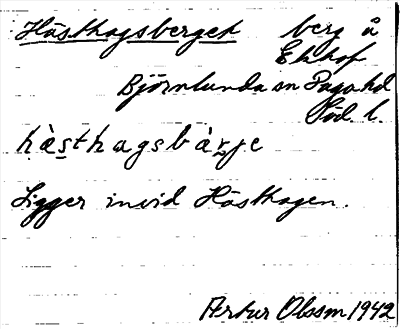 Hästhagsberget berg å
Ekhof
Björnlunda sn Daga hd
Söd. l.
hàsthagsbàrje
Ligger invid Hästhagen.
Artur Olsson 1942